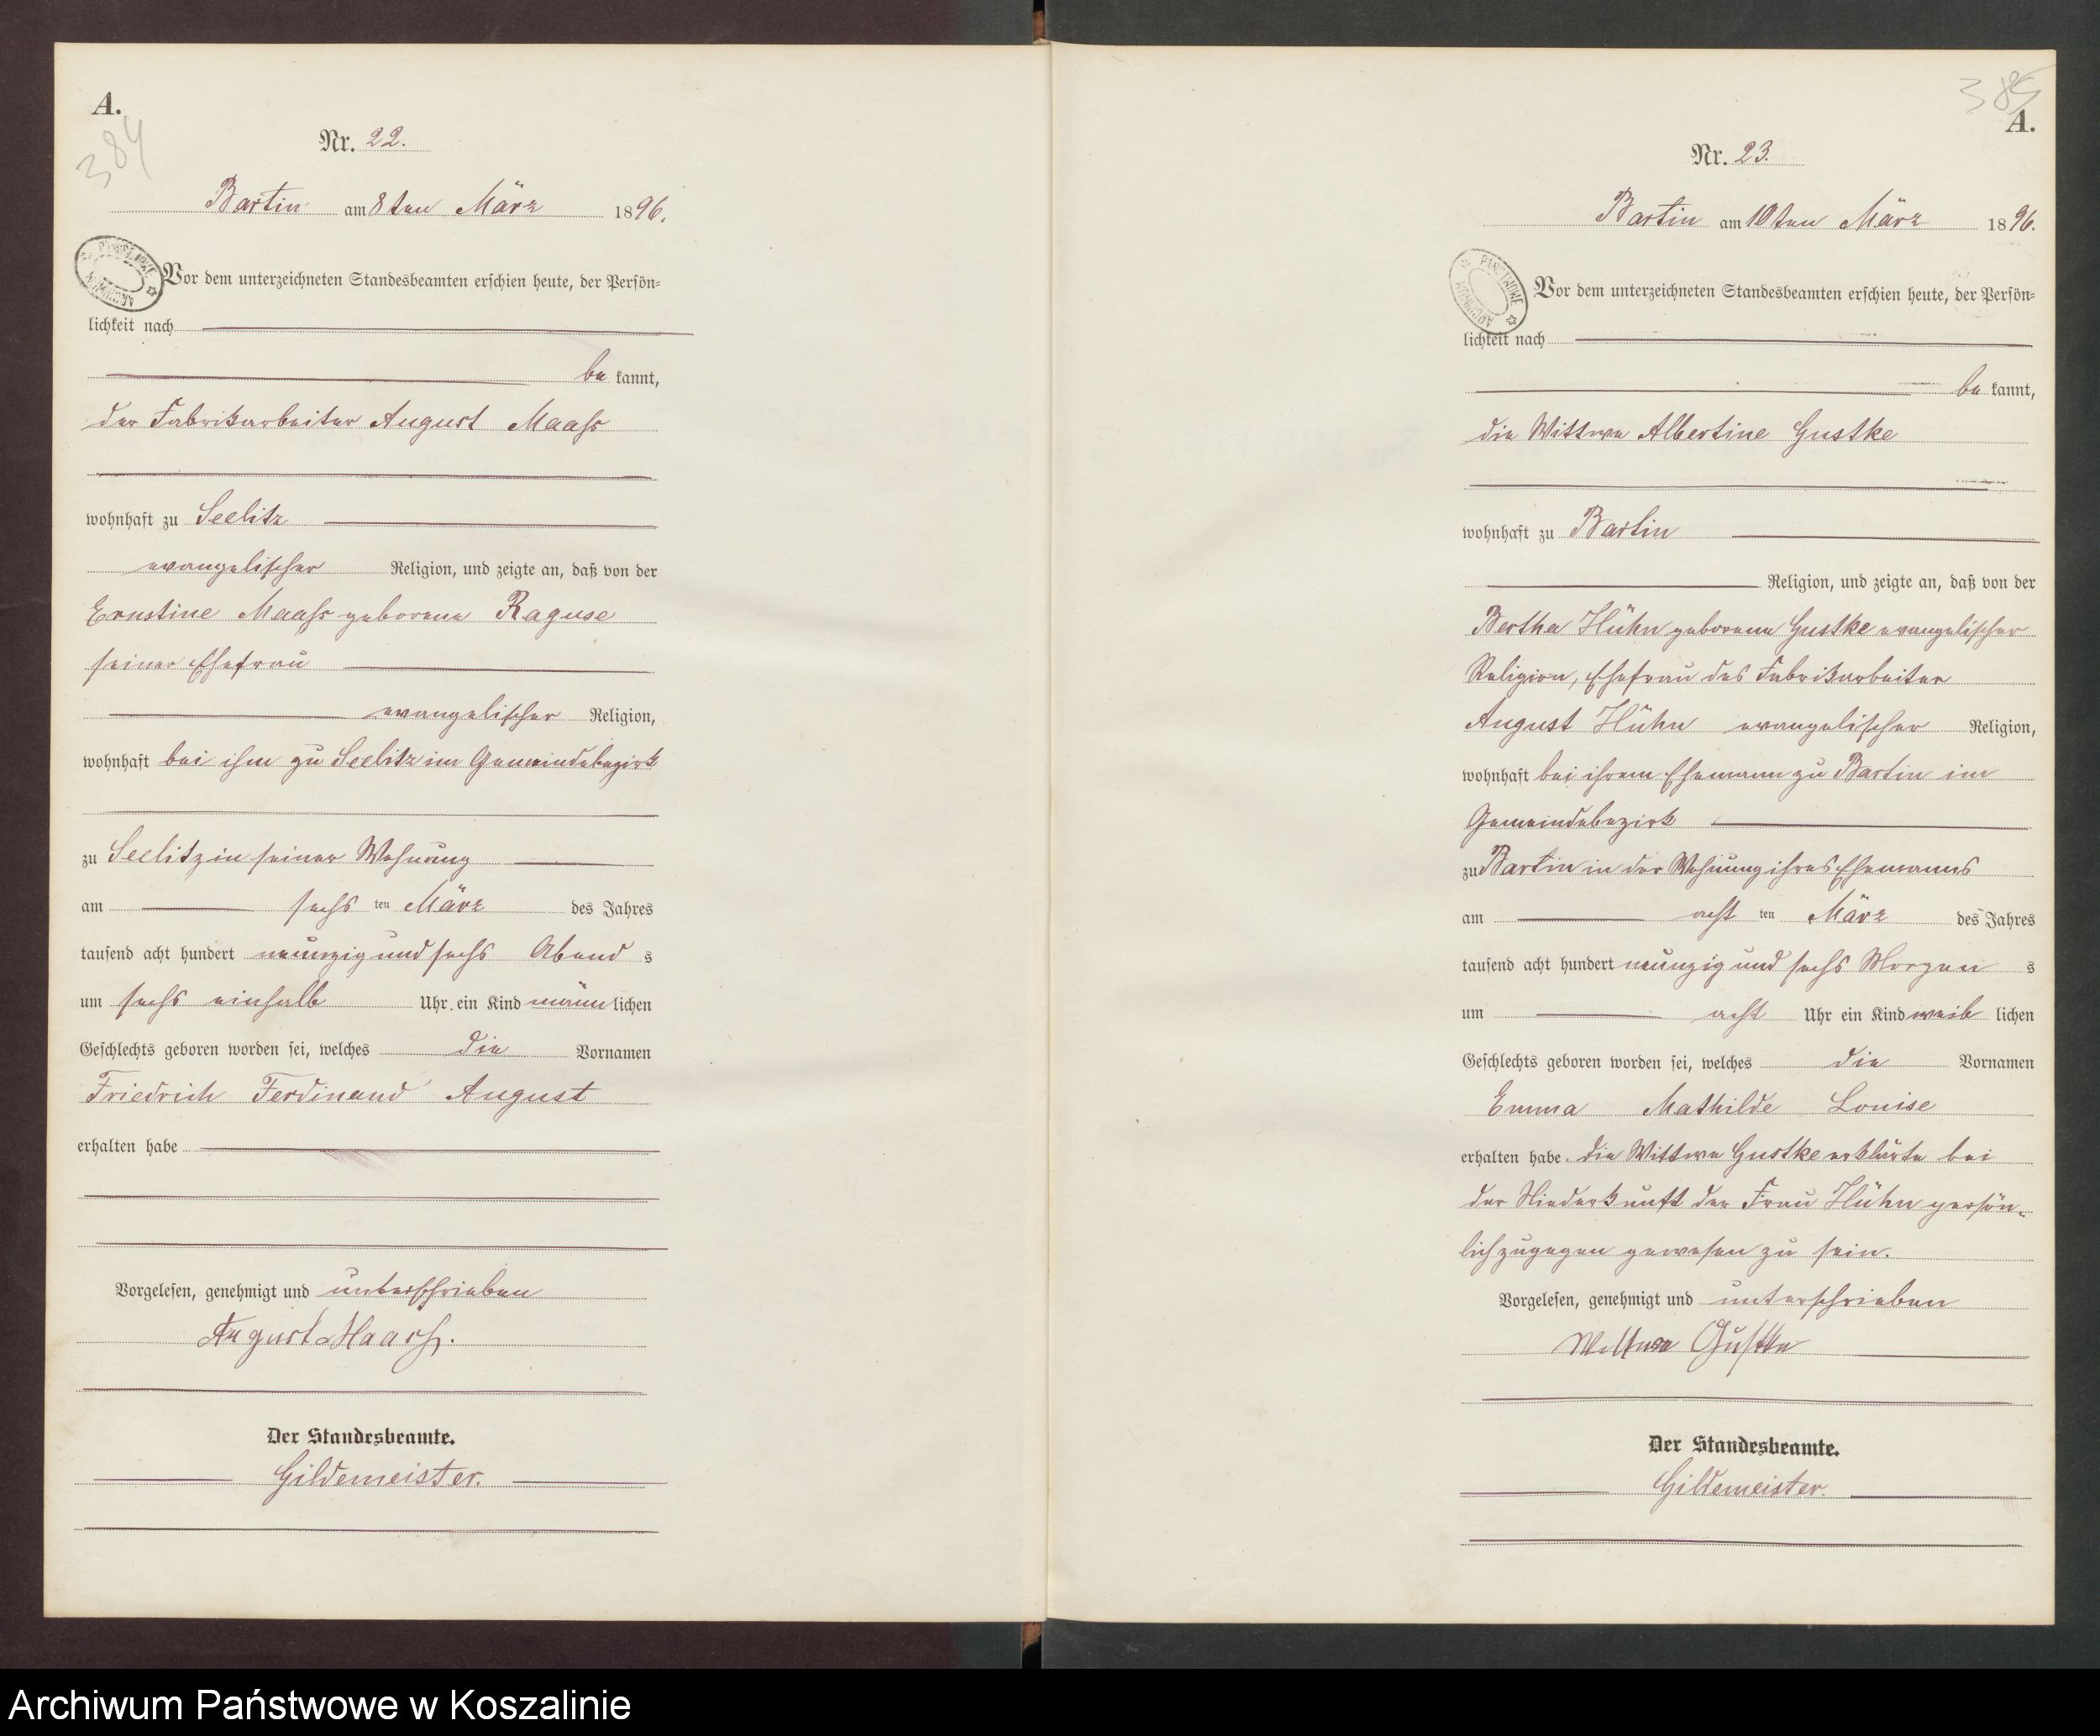 A.
384
Nr. 22.
Bartin am 8ten März 1896.
PAŃSTWOWE ARCHIWUM
Vor dem unterzeichneten Standesbeamten erschien heute, der Persön-
lichkeit nach
be kannt,
der Fabrikarbeiter August Maaß
wohnhaft zu Seelitz
evangelischer Religion, und zeigte an, daß von der
Ernstine Maaß geborene Raguse
seiner Ehefrau
evangelischer Religion,
wohnhaft bei ihm zu Seelitz im Gemeindebezirk
zu Seelitz in seiner Wohnung
am sechs ten März des Jahres
tausend acht hundert neunzig und sechs Abend s
um sechs einhalb Uhr ein Kind männ lichen
Geschlechts geboren worden sei, welches die Vornamen
Friedrich Ferdinand August
erhalten habe
Vorgelesen, genehmigt und unterschrieben
August Maaß.
Der Standesbeamte.
Gildemeister.
385
A.
Nr. 23.
Bartin am 10ten März 1896.
PAŃSTWOWE ARCHIWUM
Vor dem unterzeichneten Standesbeamten erschien heute, der Persön-
lichkeit nach
be kannt,
die Wittwe Albertine Gustke
wohnhaft zu Bartin
Religion, und zeigte an, daß von der
Bertha Hühn geborene Gustke evangelischer
Religion, Ehefrau des Fabrikarbeiter
August Hühn evangelischer Religion,
wohnhaft bei ihrem Ehemann zu Bartin im
Gemeindebezirk
zu Bartin in der Wohnung ihres Ehemanns
am acht ten März des Jahres
tausend acht hundert neunzig und sechs Morgen s
um acht Uhr ein Kind weib lichen
Geschlechts geboren worden sei, welches die Vornamen
Emma Mathilde Louise
erhalten habe. Die Wittwe Gustke erklärte bei
der Niederkunft der Frau Hühn persön-
lich zugegen gewesen zu sein.
Vorgelesen, genehmigt und unterschrieben
Wittwe Gustke
Der Standesbeamte.
Gildemeister.
Archiwum Państwowe w Koszalinie